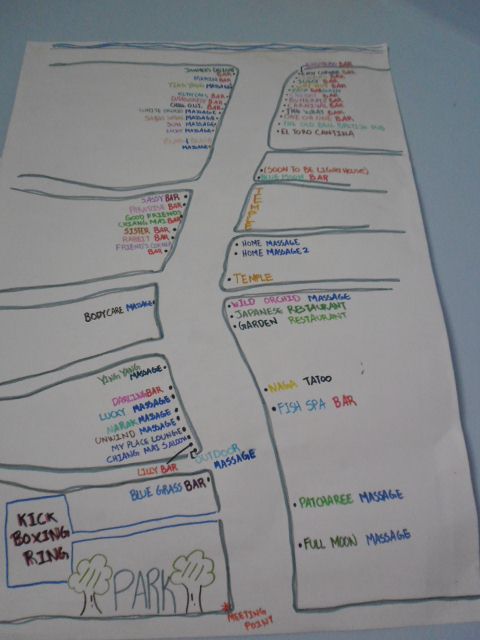 BAR
BAR
YING YANG MASSAGE
BAR
BAR
CHILL OUT BAR
WHITE ORCHID MASSAGE
MASSAGE
SUN MASSAGE
LUCY MASSAGE
MASSAGE
BAR
BAR
BAR
BAR
BAR
BAR
BUTTERFLY BAR
CARNIVAL BAR
THE WHAT BAR
ONE OR ONE BAR
THE OLD BELL BRITISH PUB
EL TORO CANTINA
(SOON TO BE LIGHTHOUSE)
BLUE MOON BAR
TEMPLE
SASSY BAR
PARADISE BAR
GOOD FRIENDS
CHIANG MAI BAR
SISTER BAR
RABBIT BAR
FRIEND'S CORNER
BAR
HOME MASSAGE
HOME MASSAGE 2
TEMPLE
BODYCARE MASSAGE
WILD ORCHID MASSAGE
JAPANESE RESTAURANT
GARDEN RESTAURANT
YING YANG
MASSAGE
DARLING BAR
LUCKY MASSAGE
NARAK MASSAGE
UNWIND MASSAGE
MY PLACE LOUNGE
CHIANG MAI SALOON
NAGA TATOO
FISH SPA BAR
LILLY BAR
OUTDOOR
MASSAGE
BLUE GRASS BAR
PATCHAREE MASSAGE
FULL MOON MASSAGE
KICK
BOXING
RING
PARK
MEETING
POINT